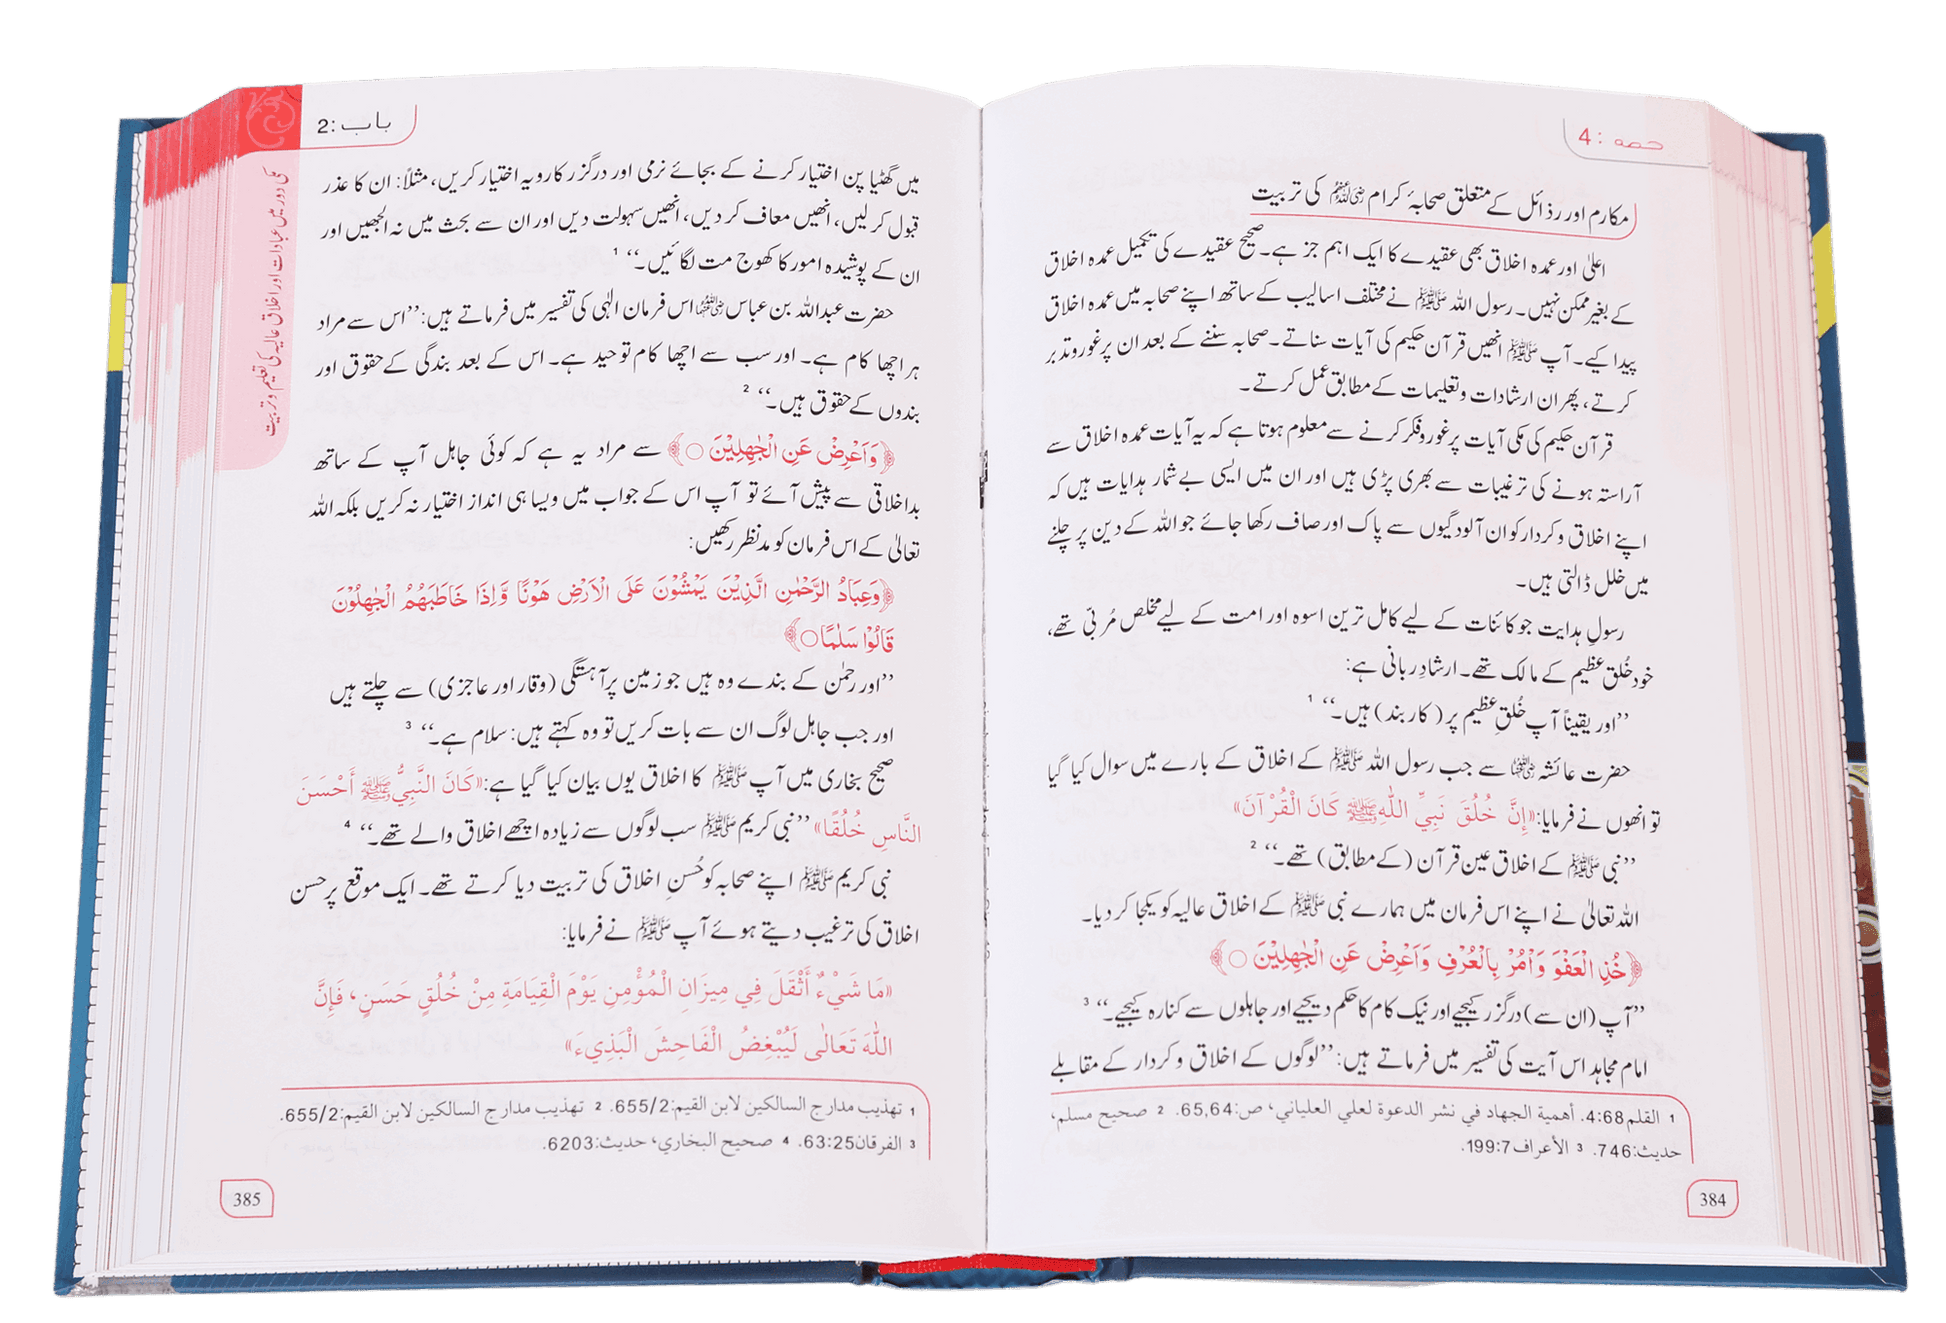 حصہ : 4
مکارم اور رذائل کے متعلق صحابۂ کرام رضی اللہ عنہم کی تربیت
اعلیٰ اور عمدہ اخلاق بھی عقیدے کا ایک اہم جز ہے۔ صحیح عقیدے کی تکمیل عمدہ اخلاق
کے بغیر ممکن نہیں۔ رسول اللہ ﷺ نے مختلف اسالیب کے ساتھ اپنے صحابہ میں عمدہ اخلاق
پیدا کیے۔ آپ ﷺ انھیں قرآن حکیم کی آیات سناتے۔ صحابہ سننے کے بعد ان پر غور و تدبر
کرتے، پھر ان ارشادات و تعلیمات کے مطابق عمل کرتے۔
قرآن حکیم کی مکی آیات پر غور و فکر کرنے سے معلوم ہوتا ہے کہ یہ آیات عمدہ اخلاق سے
آراستہ ہونے کی ترغیبات سے بھری پڑی ہیں اور ان میں ایسی بے شمار ہدایات ہیں کہ
اپنے اخلاق و کردار کو ان آلودگیوں سے پاک اور صاف رکھا جائے جو اللہ کے دین پر چلنے
میں خلل ڈالتی ہیں۔
رسولِ ہدایت جو کائنات کے لیے کامل ترین اسوہ اور امت کے لیے مخلص مُربّی تھے،
خود خُلق عظیم کے مالک تھے۔ ارشادِ ربانی ہے:
’’اور یقیناً آپ خُلقِ عظیم پر (کاربند) ہیں۔‘‘ 1
حضرت عائشہ رضی اللہ عنہا سے جب رسول اللہ ﷺ کے اخلاق کے بارے میں سوال کیا گیا
تو انھوں نے فرمایا: «إِنَّ خُلُقَ نَبِيِّ اللّٰهِ ﷺ كَانَ الْقُرْآنَ»
’’نبی ﷺ کے اخلاق عین قرآن (کے مطابق) تھے۔‘‘ 2
اللہ تعالیٰ نے اپنے اس فرمان میں ہمارے نبی ﷺ کے اخلاق عالیہ کو یکجا کر دیا۔
﴿خُذِ الْعَفْوَ وَاْمُرْ بِالْعُرْفِ وَاَعْرِضْ عَنِ الْجٰهِلِيْنَ ○﴾
’’آپ (ان سے) درگزر کیجیے اور نیک کام کا حکم دیجیے اور جاہلوں سے کنارہ کیجیے۔‘‘ 3
امام مجاہد اس آیت کی تفسیر میں فرماتے ہیں: ’’لوگوں کے اخلاق و کردار کے مقابلے
1 القلم 4:68. أهمية الجهاد في نشر الدعوة لعلي العلياني، ص:65,64. 2 صحيح مسلم،
حديث:746. 3 الأعراف 199:7.
384
باب :2
مکی دور میں عبادات اور اخلاق عالیہ کی تعلیم و تربیت
میں گھٹیا پن اختیار کرنے کے بجائے نرمی اور درگزر کا رویہ اختیار کریں، مثلاً: ان کا عذر
قبول کر لیں، انھیں معاف کر دیں، انھیں سہولت دیں اور ان سے بحث میں نہ الجھیں اور
ان کے پوشیدہ امور کا کھوج مت لگائیں۔‘‘ 1
حضرت عبداللہ بن عباس رضی اللہ عنہما اس فرمان الٰہی کی تفسیر میں فرماتے ہیں: ’’اس سے مراد
ہر اچھا کام ہے۔ اور سب سے اچھا کام توحید ہے۔ اس کے بعد بندگی کے حقوق اور
بندوں کے حقوق ہیں۔‘‘ 2
﴿وَاَعْرِضْ عَنِ الْجٰهِلِيْنَ ○﴾ سے مراد یہ ہے کہ کوئی جاہل آپ کے ساتھ
بداخلاقی سے پیش آئے تو آپ اس کے جواب میں ویسا ہی انداز اختیار نہ کریں بلکہ اللہ
تعالیٰ کے اس فرمان کو مدنظر رکھیں:
﴿وَعِبَادُ الرَّحْمٰنِ الَّذِيْنَ يَمْشُوْنَ عَلَى الْاَرْضِ هَوْنًا وَّاِذَا خَاطَبَهُمُ الْجٰهِلُوْنَ
قَالُوْا سَلٰمًا○﴾
’’اور رحمٰن کے بندے وہ ہیں جو زمین پر آہستگی (وقار اور عاجزی) سے چلتے ہیں
اور جب جاہل لوگ ان سے بات کریں تو وہ کہتے ہیں: سلام ہے۔‘‘ 3
صحیح بخاری میں آپ ﷺ کا اخلاق یوں بیان کیا گیا ہے: «كَانَ النَّبِيُّ ﷺ أَحْسَنَ
النَّاسِ خُلُقًا» ’’نبی کریم ﷺ سب لوگوں سے زیادہ اچھے اخلاق والے تھے۔‘‘ 4
نبی کریم ﷺ اپنے صحابہ کو حُسنِ اخلاق کی تربیت دیا کرتے تھے۔ ایک موقع پر حسن
اخلاق کی ترغیب دیتے ہوئے آپ ﷺ نے فرمایا:
«مَا شَيْءٌ أَثْقَلَ فِي مِيزَانِ الْمُؤْمِنِ يَوْمَ الْقِيَامَةِ مِنْ خُلُقٍ حَسَنٍ، فَإِنَّ
اللّٰهَ تَعَالٰى لَيُبْغِضُ الْفَاحِشَ الْبَذِيءَ»
1 تهذيب مدارج السالكين لابن القيم:655/2. 2 تهذيب مدارج السالكين لابن القيم:655/2.
3 الفرقان 63:25. 4 صحيح البخاري، حديث:6203.
385